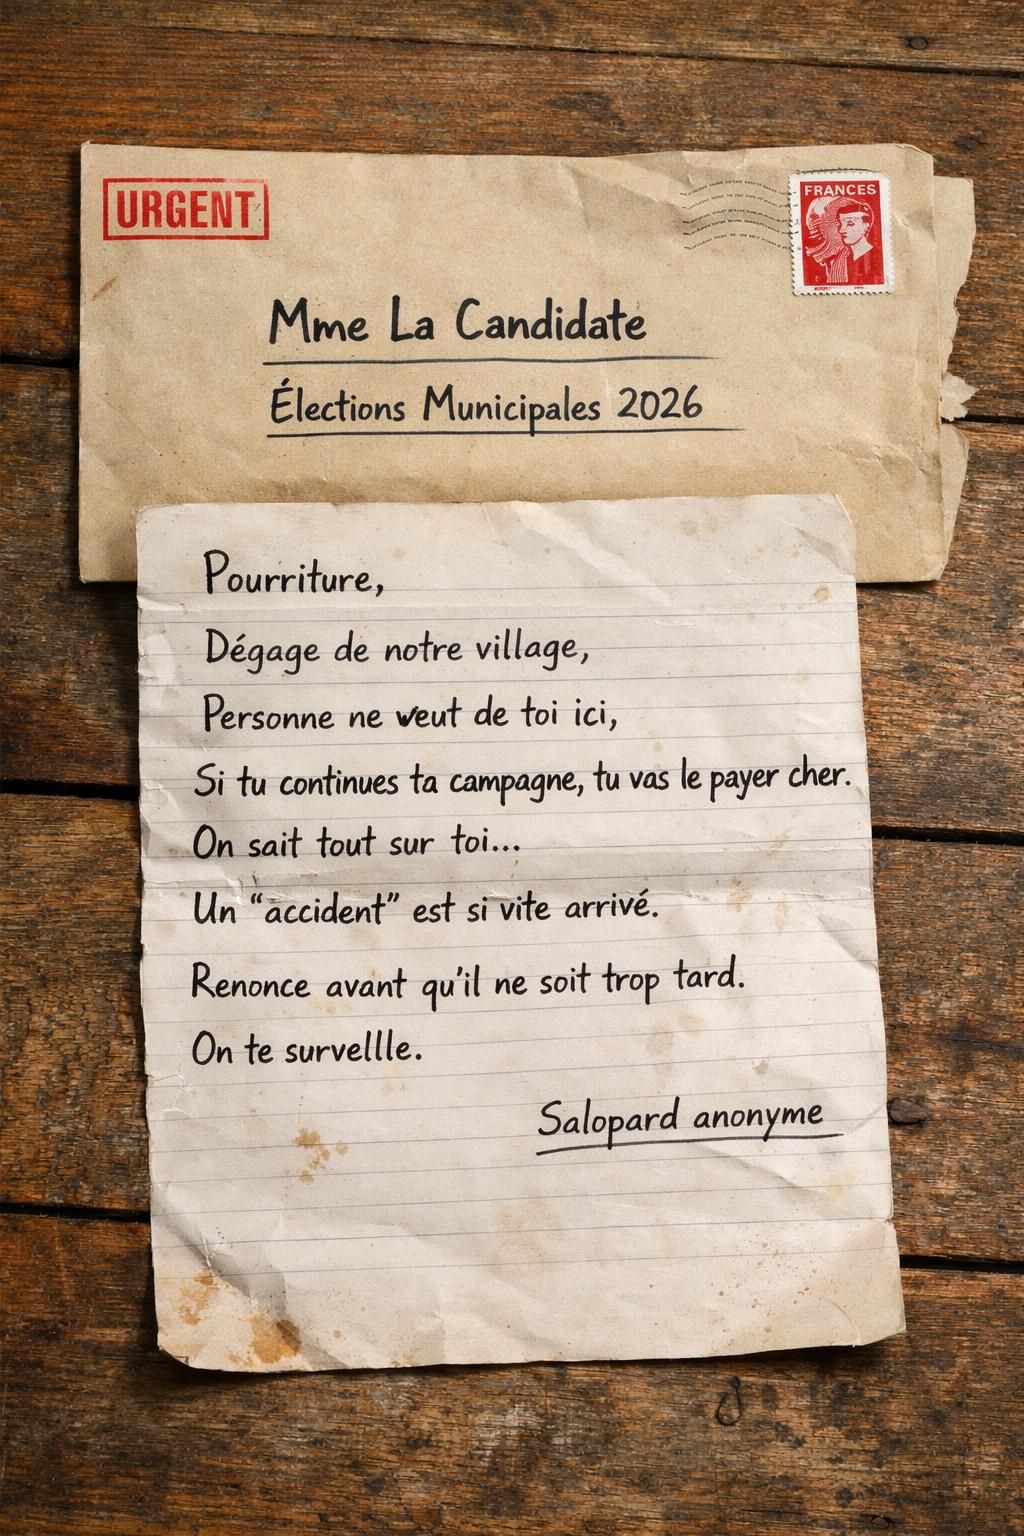 URGENT
FRANCES
Mme La Candidate
Élections Municipales 2026
Pourriture,
Dégage de notre village,
Personne ne veut de toi ici,
Si tu continues ta campagne, tu vas le payer cher.
On sait tout sur toi...
Un “accident” est si vite arrivé.
Renonce avant qu'il ne soit trop tard.
On te survellle.
Salopard anonyme